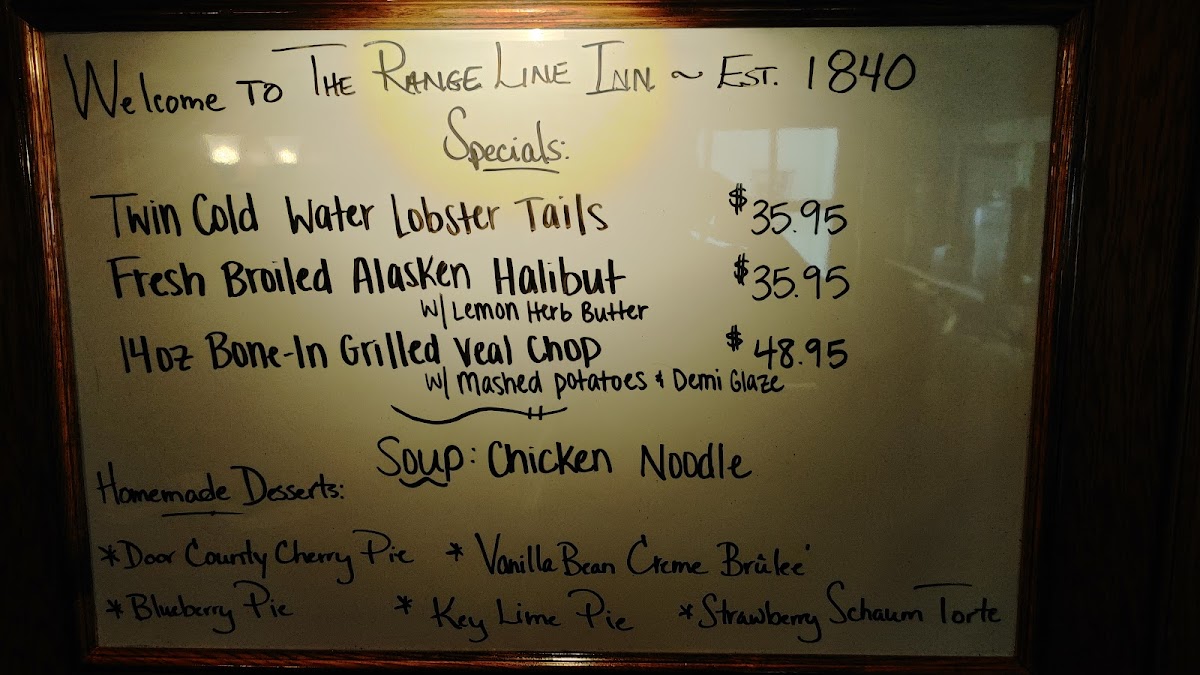 Welcome TO THE RANGE LINE INN ~ EST. 1840
Specials:
Twin Cold Water Lobster Tails $35.95
Fresh Broiled Alasken Halibut $35.95
w/ Lemon Herb Butter
14oz Bone-In Grilled Veal Chop $48.95
w/ Mashed potatoes & Demi Glaze
Soup: Chicken Noodle
Homemade Desserts:
*Door County Cherry Pie * Vanilla Bean Creme Brûleé
*Blueberry Pie * Key Lime Pie *Strawberry Schaum Torte